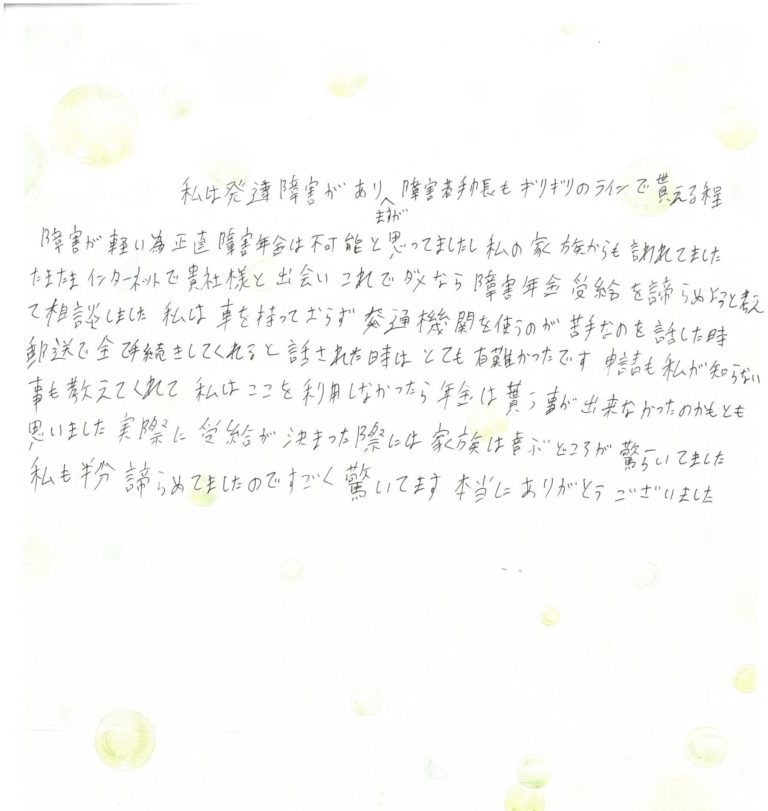 私は発達障害があり、障害者手帳もギリギリのラインで貰える程
ますが
障害が軽い為正直障害年金は不可能と思ってましたし私の家族からも言われてました
たまたまインターネットで貴社様と出会いこれでダメなら障害年金受給を諦らめようと考え
て相談しました 私は車を持っておらず交通機関を使うのが苦手なのを話した時
郵送で全て手続きしてくれると話された時はとても有難かったです 申請も私が知らない
事も教えてくれて 私はここを利用しなかったら年金は貰う事が出来なかったのかもとも
思いました 実際に受給が決まった際には家族は喜ぶどころが驚らいてました
私も半分諦らめてましたのですごく驚いてます 本当にありがとうございました